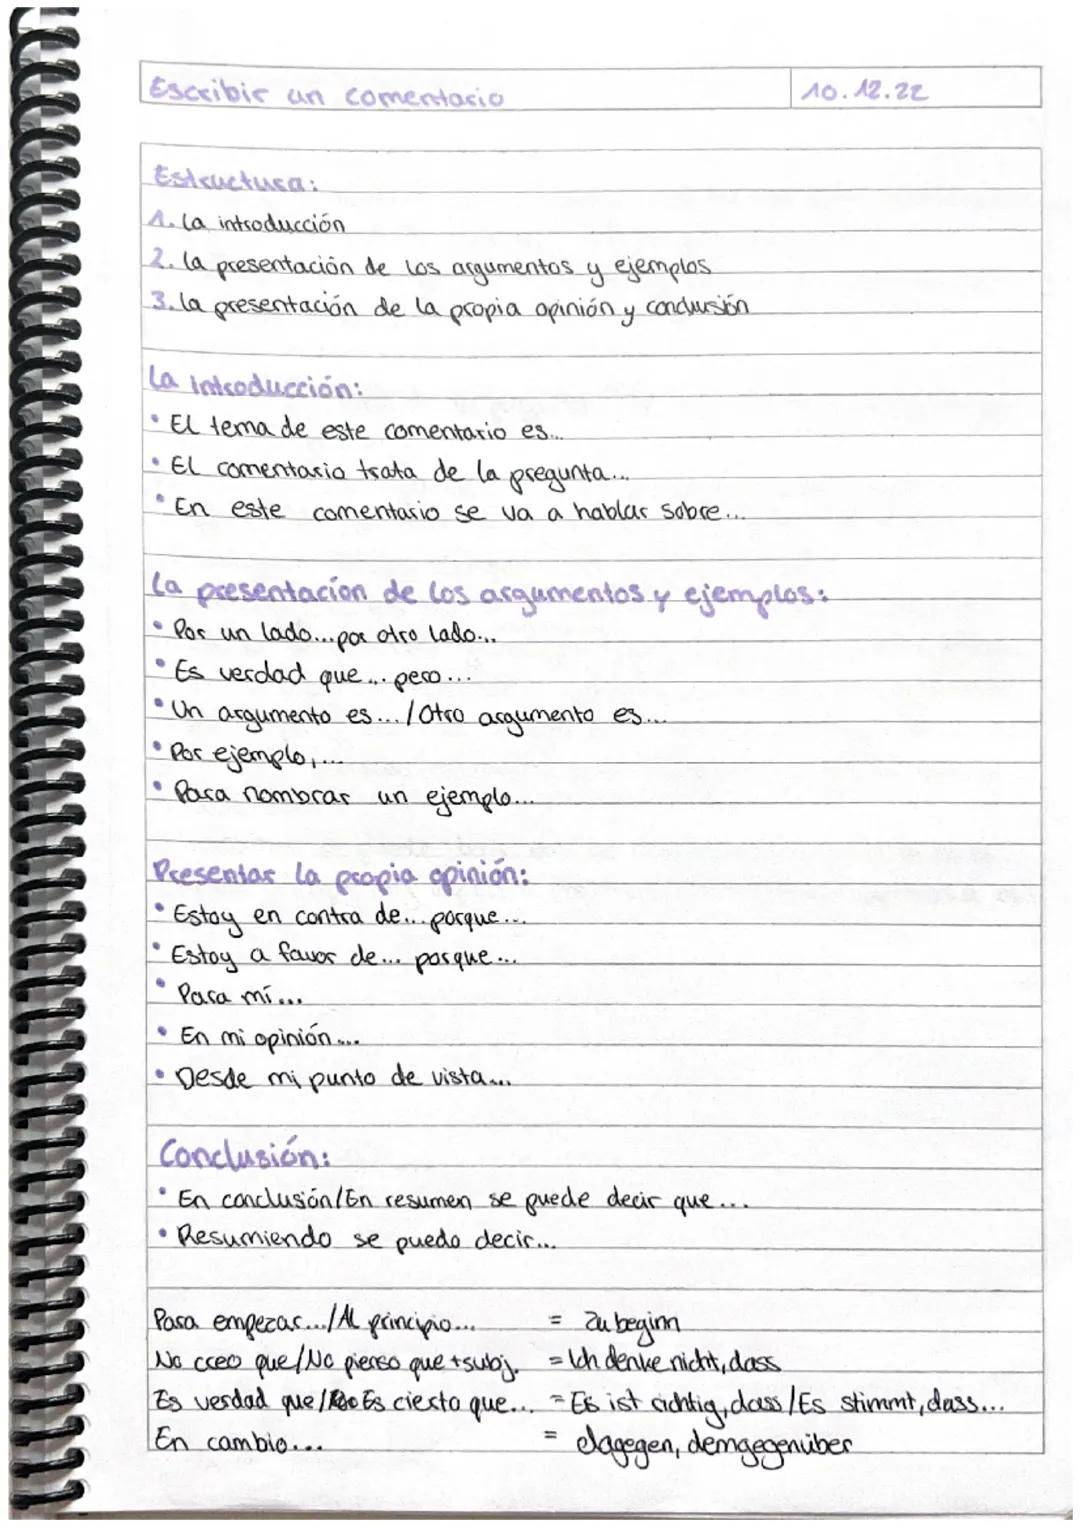 Escribir un comentario 10.12.22
Estructura:
1. la introducción
2. la presentación de los argumentos y ejemplos
3. la presentación de la propia opinión y conclusión
La introducción:
• El tema de este comentario es...
• El comentario trata de la pregunta...
• En este comentario se va a hablar sobre...
La presentación de los argumentos y ejemplos:
• Por un lado...por otro lado...
• Es verdad que... pero...
• Un argumento es.../Otro argumento es...
• Por ejemplo,...
• Para nombrar un ejemplo...
Presentar la propia opinión:
• Estoy en contra de... porque...
• Estoy a favor de... porque...
• Para mí...
• En mi opinión...
• Desde mi punto de vista...
Conclusión:
• En conclusión/En resumen se puede decir que...
• Resumiendo se puedo decir...
Para empezar.../Al principio... = zu beginn
No creo que/No pienso que +subj. = Ich denke nicht, dass
Es verdad que/Es cierto que... = Es ist richtig, dass/Es stimmt, dass...
En cambio... = dagegen, demgegenüber